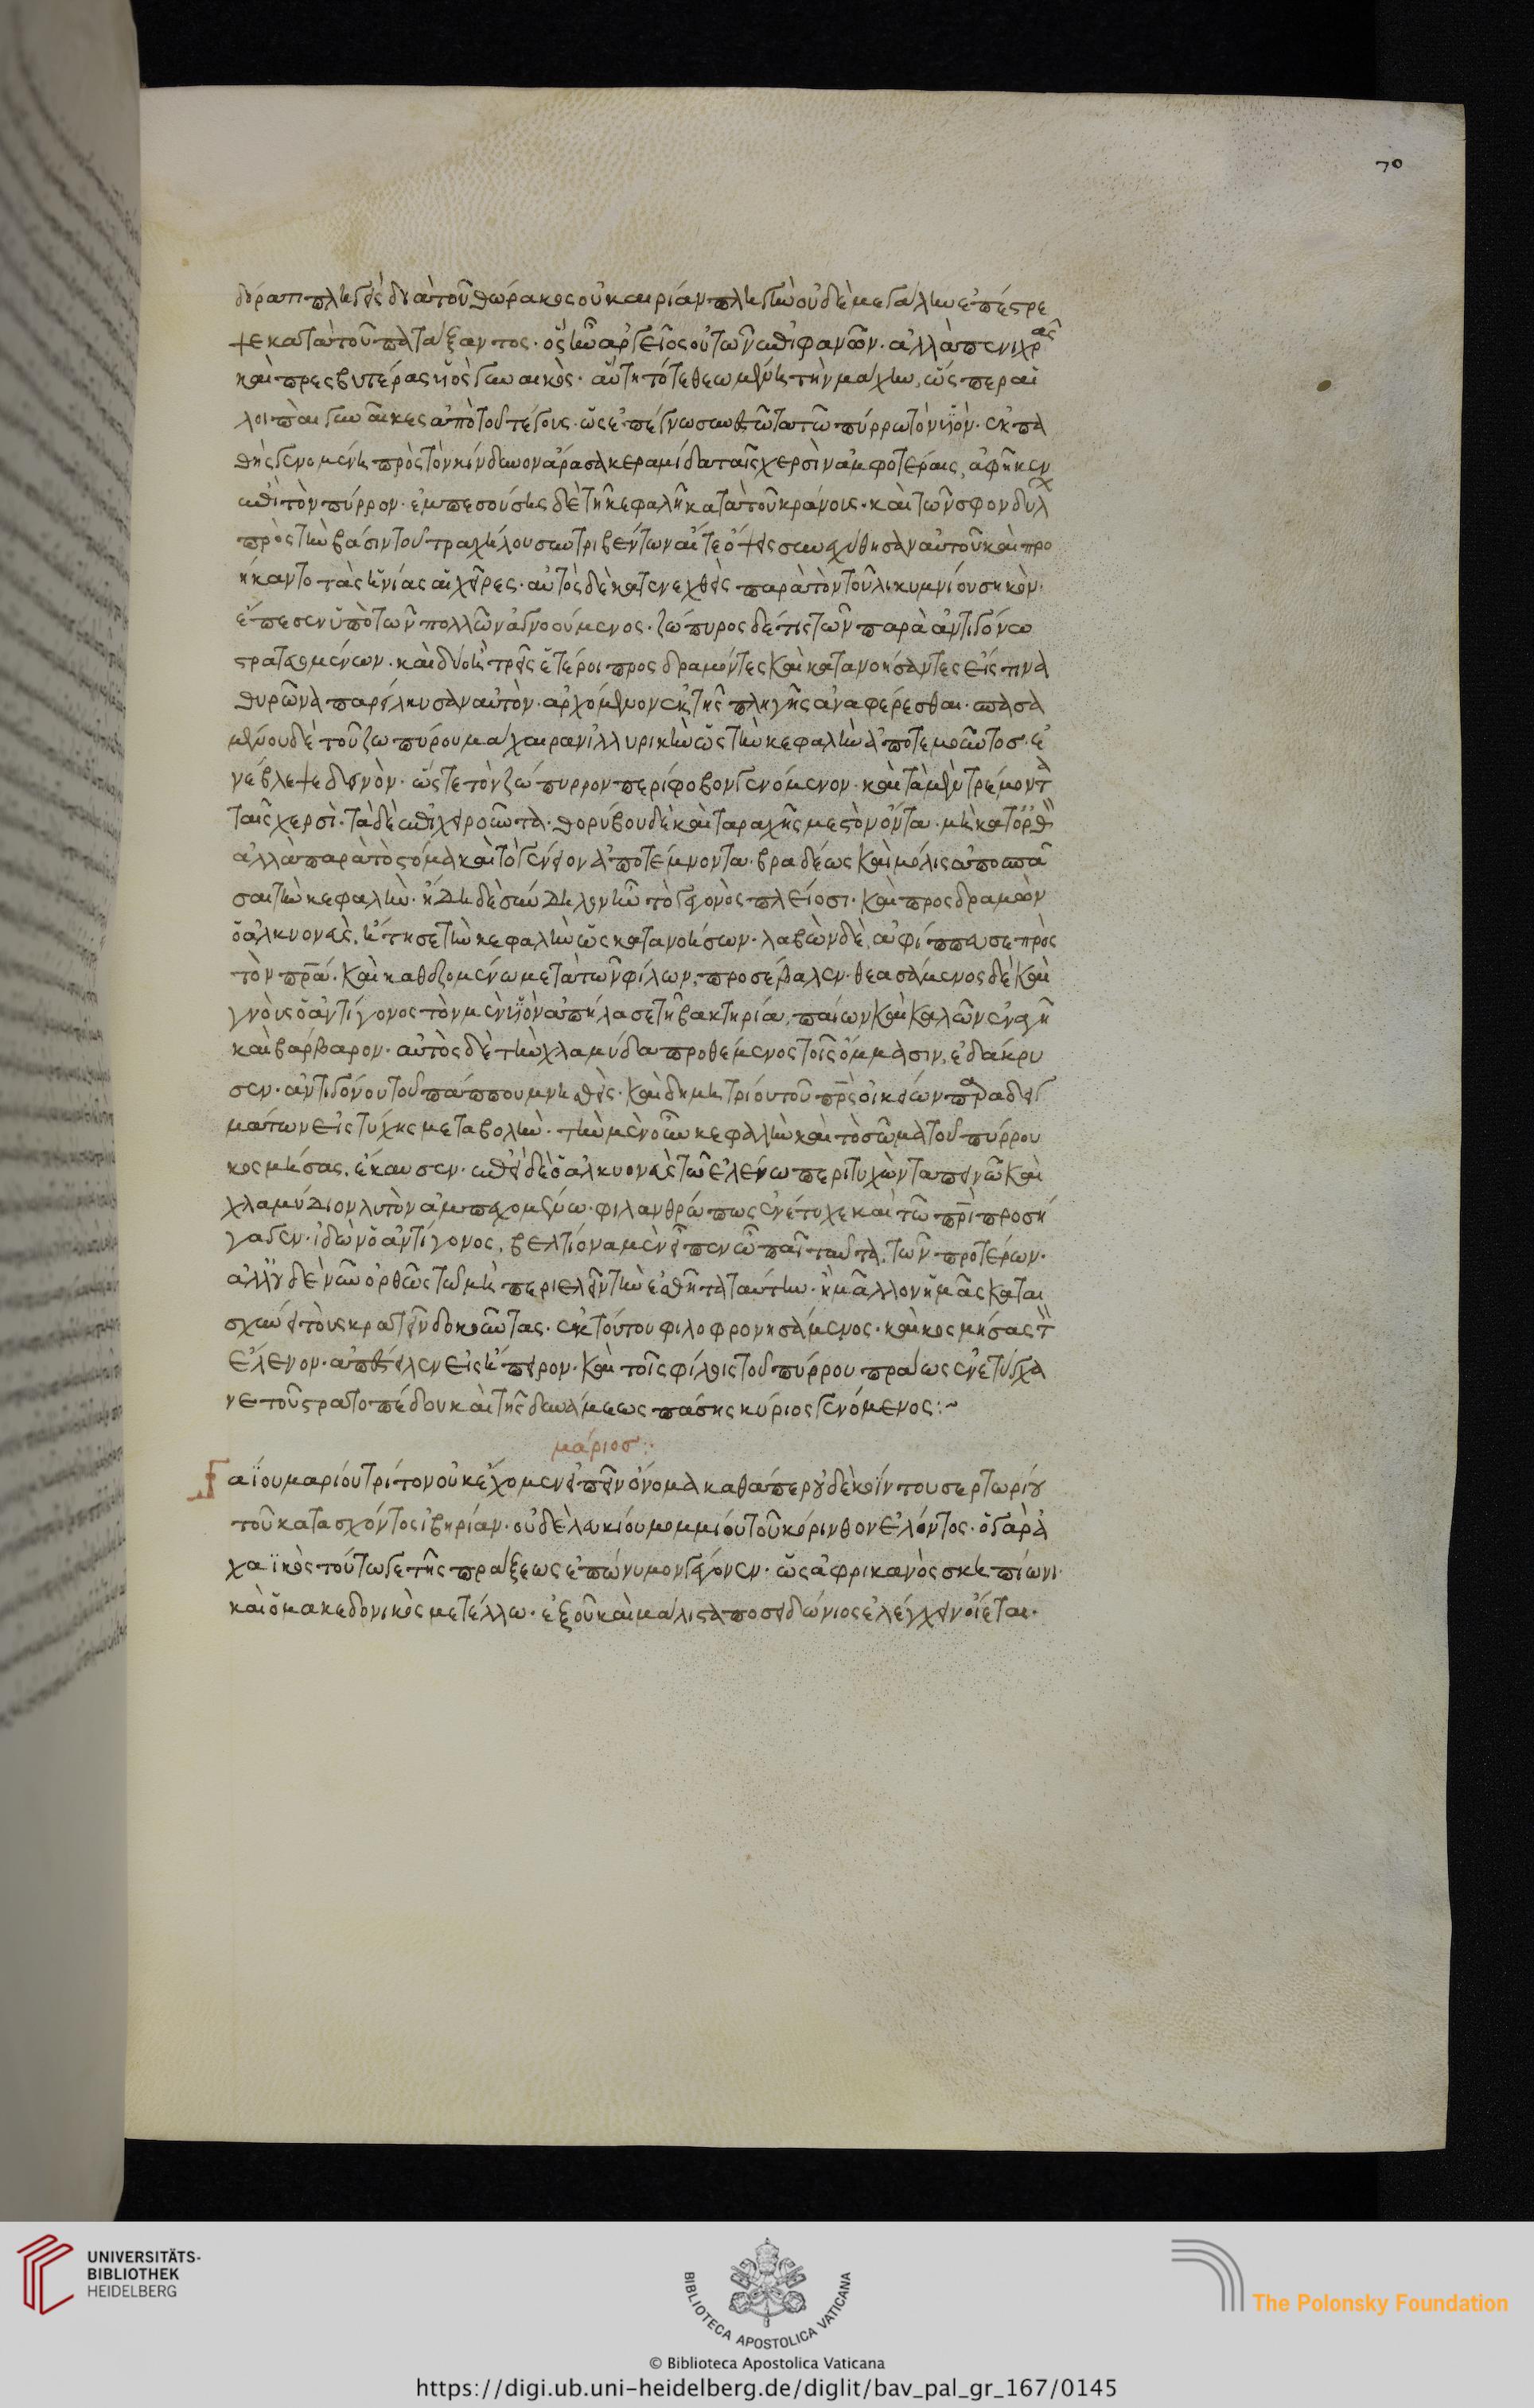 70
δόρατι πληγεὶς διὰ τοῦ θώρακος οὐ καιρίαν πληγὴν οὐδὲ μεγάλην ἐπέστρε
ψε κατὰ τοῦ πατάξαντος· ὃς ἦν ἀργεῖος οὐ τῶν ἐπιφανῶν· ἀλλὰ πενιχρᾶς
καὶ πρεσβυτέρας υἱὸς γυναικός· αὕτη τότε θεωμένη τὴν μάχην, ὥσπερ αἱ
λοιπαὶ γυναῖκες ἀπὸ τοῦ τέγους· ὡς ἐπέγνω συνεστῶτα τῶ πύρρω τὸν υἱὸν· ἐκπα
θὴς γενομένη πρὸς τὸν κίνδυνον ἄρασα κεραμίδα ταῖς χερσὶν ἀμφοτέραις, ἀφῆκεν
ἐπὶ τὸν πύρρον· ἐμπεσούσης δὲ τῆ κεφαλῆ κατὰ τοῦ κράνους· καὶ τῶν σφονδύλ
πρὸς τὴν βάσιν τοῦ τραχήλου συντριβέντων αἵ τε ὄψεις συνεχύθησαν αὐτοῦ καὶ προ
ήκαντο τὰς ἡνίας αἱ χεῖρες· αὐτὸς δὲ κατενεχθεὶς παρὰ τὸν τοῦ λικυμνίου σηκὸν·
ἔπεσεν ὑπὸ τῶν πολλῶν ἀγνοούμενος· ζώπυρος δέ τις τῶν παρὰ ἀντιγόνω
στρατευομένων· καὶ δύο ἢ τρεῖς ἕτεροι προσδραμόντες καὶ κατανοήσαντες εἴς τινα
θυρῶνα παρείλκυσαν αὐτὸν· ἀρχόμενον ἐκ τῆς πληγῆς ἀναφέρεσθαι· σπασα
μένου δὲ τοῦ ζωπύρου μάχαιραν ἰλλυρικὴν ὡς τὴν κεφαλὴν ἀποτεμοῦντος· ἐ
νέβλεψε δεινὸν· ὥστε τὸν ζώπυρρον περίφοβον γενόμενον· καὶ τὰ μὲν τρέμοντα
ταῖς χερσὶ· τὰ δὲ ἐπιχειροῦντα· θορύβου δὲ καὶ ταραχῆς μεστὸν ὄντα· μὴ κατορθ
ἀλλὰ παρὰ τὸ στόμα καὶ τὸ γένειον ἀποτέμνοντα· βραδέως καὶ μόλις ἀποσπᾶ
σαι τὴν κεφαλὴν· ἤδη δὲ σύνδηλον ἦν τὸ γεγονὸς πλείοσι· καὶ προσδραμὼν
ὁ ἀλκυονεὺς, ἤτησε τὴν κεφαλὴν ὡς κατανοήσων· λαβὼν δὲ, ἀφίππευσε πρὸς
τὸν πρα· καὶ καθεζομένω μετὰ τῶν φίλων, προσέβαλεν· θεασάμενος δὲ καὶ
γνοὺς ὁ ἀντίγονος τὸν μὲν υἱὸν ἀπήλασε τῆ βακτηρία, παίων καὶ καλῶν ἐναγῆ
καὶ βάρβαρον· αὐτὸς δὲ τὴν χλαμύδα προθέμενος τοῖς ὄμμασιν, ἐδάκρυ
σεν· ἀντιγόνου τοῦ πάππου μνησθεὶς· καὶ δημητρίου τοῦ πρς οἰκείων παραδειγ
μάτων εἰς τύχης μεταβολὴν· τὴν μὲν οὖν κεφαλὴν καὶ τὸ σῶμα τοῦ πύρρου
κοσμήσας, ἔκαυσεν· ἐπεὶ δὲ ὁ ἀλκυονεὺς τῶ ἑλένω περιτυχὼν ταπεινῶ καὶ
χλαμύδιον λιτὸν ἀμπεχομένω· φιλανθρώπως ἐνέτυχε καὶ τῶ πρι προσή
γαγεν· ἰδὼν ὁ ἀντίγονος, βελτίονα μὲν εἶπεν ὦ παῖ ταῦτα, τῶν προτέρων·
ἀλλ' οὐδὲ νῦν ὀρθῶς τῶ μὴ περιελεῖν τὴν ἐσθῆτα ταύτην· ἢ μᾶλλον ἡμᾶς καται
σχύνει τοὺς κρατεῖν δοκοῦντας· ἐκ τούτου φιλοφρονησάμενος· καὶ κοσμήσας τ
ἕλενον· ἀπέστειλεν εἰς ἤπειρον· καὶ τοῖς φίλοις τοῦ πύρρου πράως ἐνετύγχα
νε τοῦ στρατοπέδου καὶ τῆς δυνάμεως πάσης κύριος γενόμενος:~
μάριος:·
Γαΐου μαρίου τρίτον οὐκ ἔχομεν εἰπεῖν ὄνομα καθάπερ οὐδὲ κοΐντου σερτωρίου
τοῦ κατασχόντος ἰβηρίαν· οὐδὲ λευκίου μομμίου τοῦ κόρινθον ἑλόντος· ὁ γὰρ ἀ
χαϊκὸς τούτω γε τῆς πράξεως ἐπώνυμον γέγονεν· ὡς ἀφρικανὸς σκηπίωνι·
καὶ ὁ μακεδονικὸς μετέλλω· ἐξ οὗ καὶ μάλιστα ποσειδώνιος ἐλέγχειν οἴεται·
UNIVERSITÄTS-
BIBLIOTHEK
HEIDELBERG
BIBLIOTECA APOSTOLICA VATICANA
The Polonsky Foundation
© Biblioteca Apostolica Vaticana
https://digi.ub.uni-heidelberg.de/diglit/bav_pal_gr_167/0145